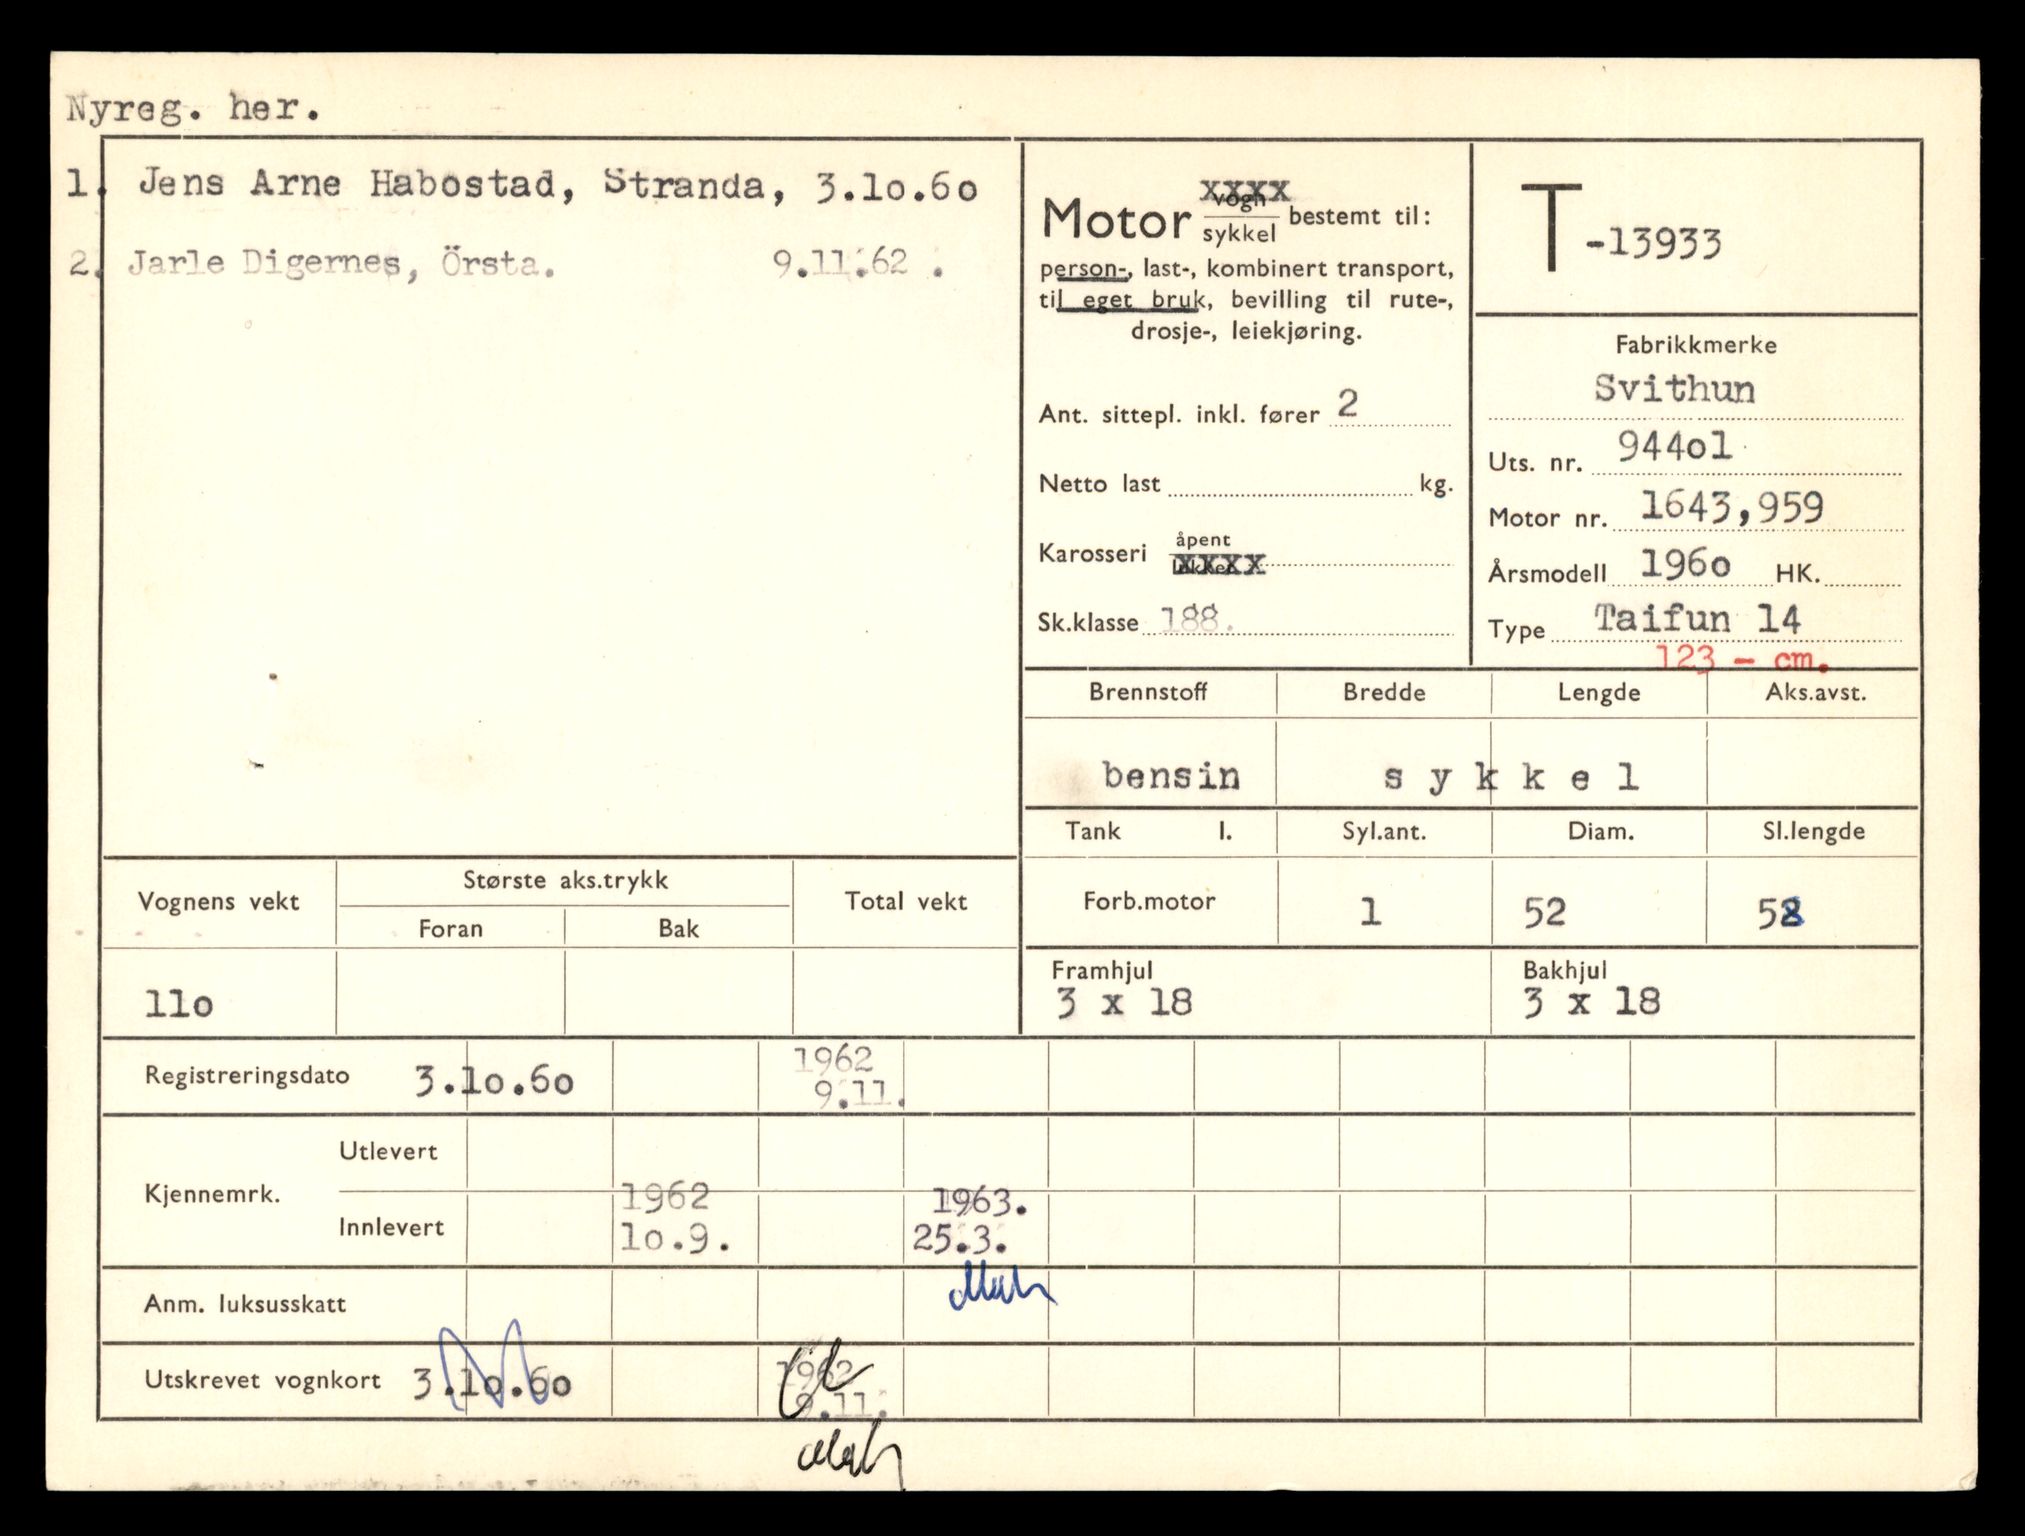 Nyreg. her.
1. Jens Arne Habostad, Stranda, 3.1o.6o
2. Jarle Digernes, Örsta. 9.11.62 .
Motor vogn xxxx
sykkel bestemt til:
person-, last-, kombinert transport,
til eget bruk, bevilling til rute-,
drosje-, leiekjøring.
Ant. sittepl. inkl. fører 2
Netto last kg.
Karosseri åpent
xxxx
Sk.klasse 188.
T -13933
Fabrikkmerke
Svithun
Uts. nr. 944o1
Motor nr. 1643,959
Årsmodell 196o HK.
Type Taifun 14
123 - cm.
Brennstoff Bredde Lengde Aks.avst.
bensin s y k k e l
Tank l. Syl.ant. Diam. Sl.lengde
Forb.motor 1 52 58
Framhjul Bakhjul
3 x 18 3 x 18
Vognens vekt Største aks.trykk Total vekt
Foran Bak
11o
Registreringsdato 3.1o.6o 1962
9.11.
Kjennemrk. Utlevert
Innlevert 1962 1963.
1o.9. 25.3.
Anm. luksusskatt
Utskrevet vognkort 3.1o.6o 1962
9.11.